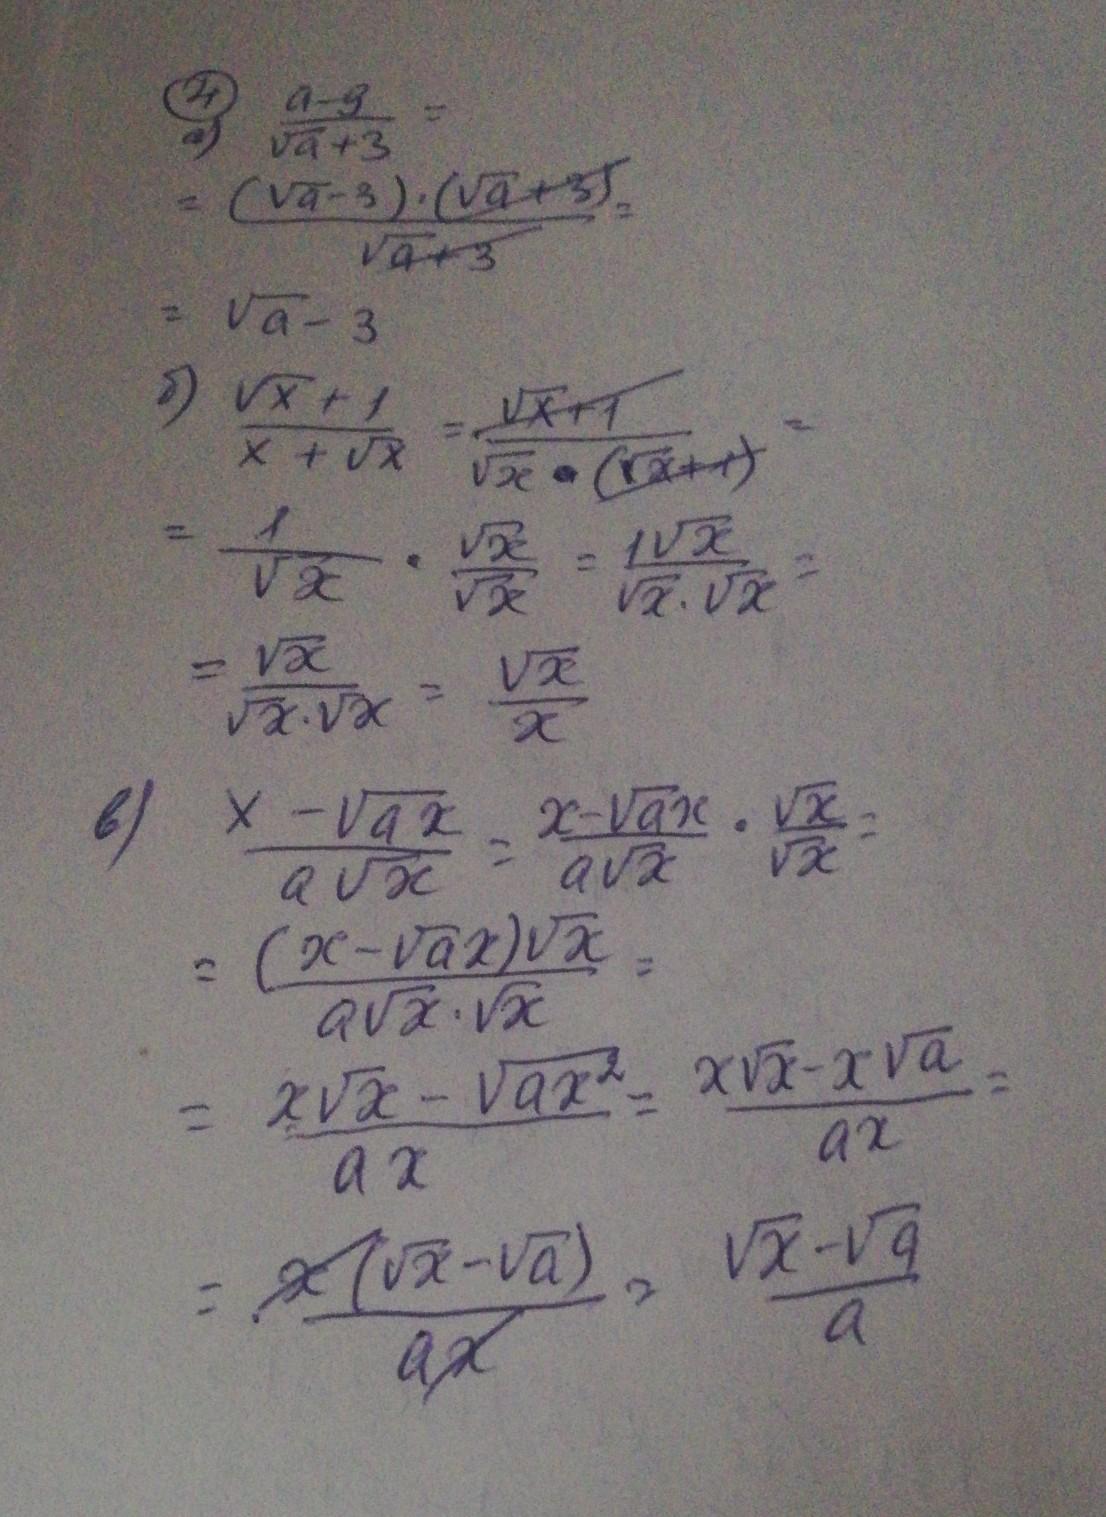 ④
а) (a-9)/(√a+3) =
= ((√a-3)·(√a+3))/(√a+3) =
= √a - 3
б) (√x+1)/(x+√x) = (√x+1)/(√x·(√x+1)) =
= 1/√x · √x/√x = 1√x/(√x·√x) =
= √x/(√x·√x) = √x/x
в) (x-√ax)/(a√x) = (x-√ax)/(a√x) · √x/√x =
= ((x-√ax)√x)/(a√x·√x) =
= (x√x-√ax²)/(ax) = (x√x-x√a)/(ax) =
= (x(√x-√a))/(ax) = (√x-√a)/a